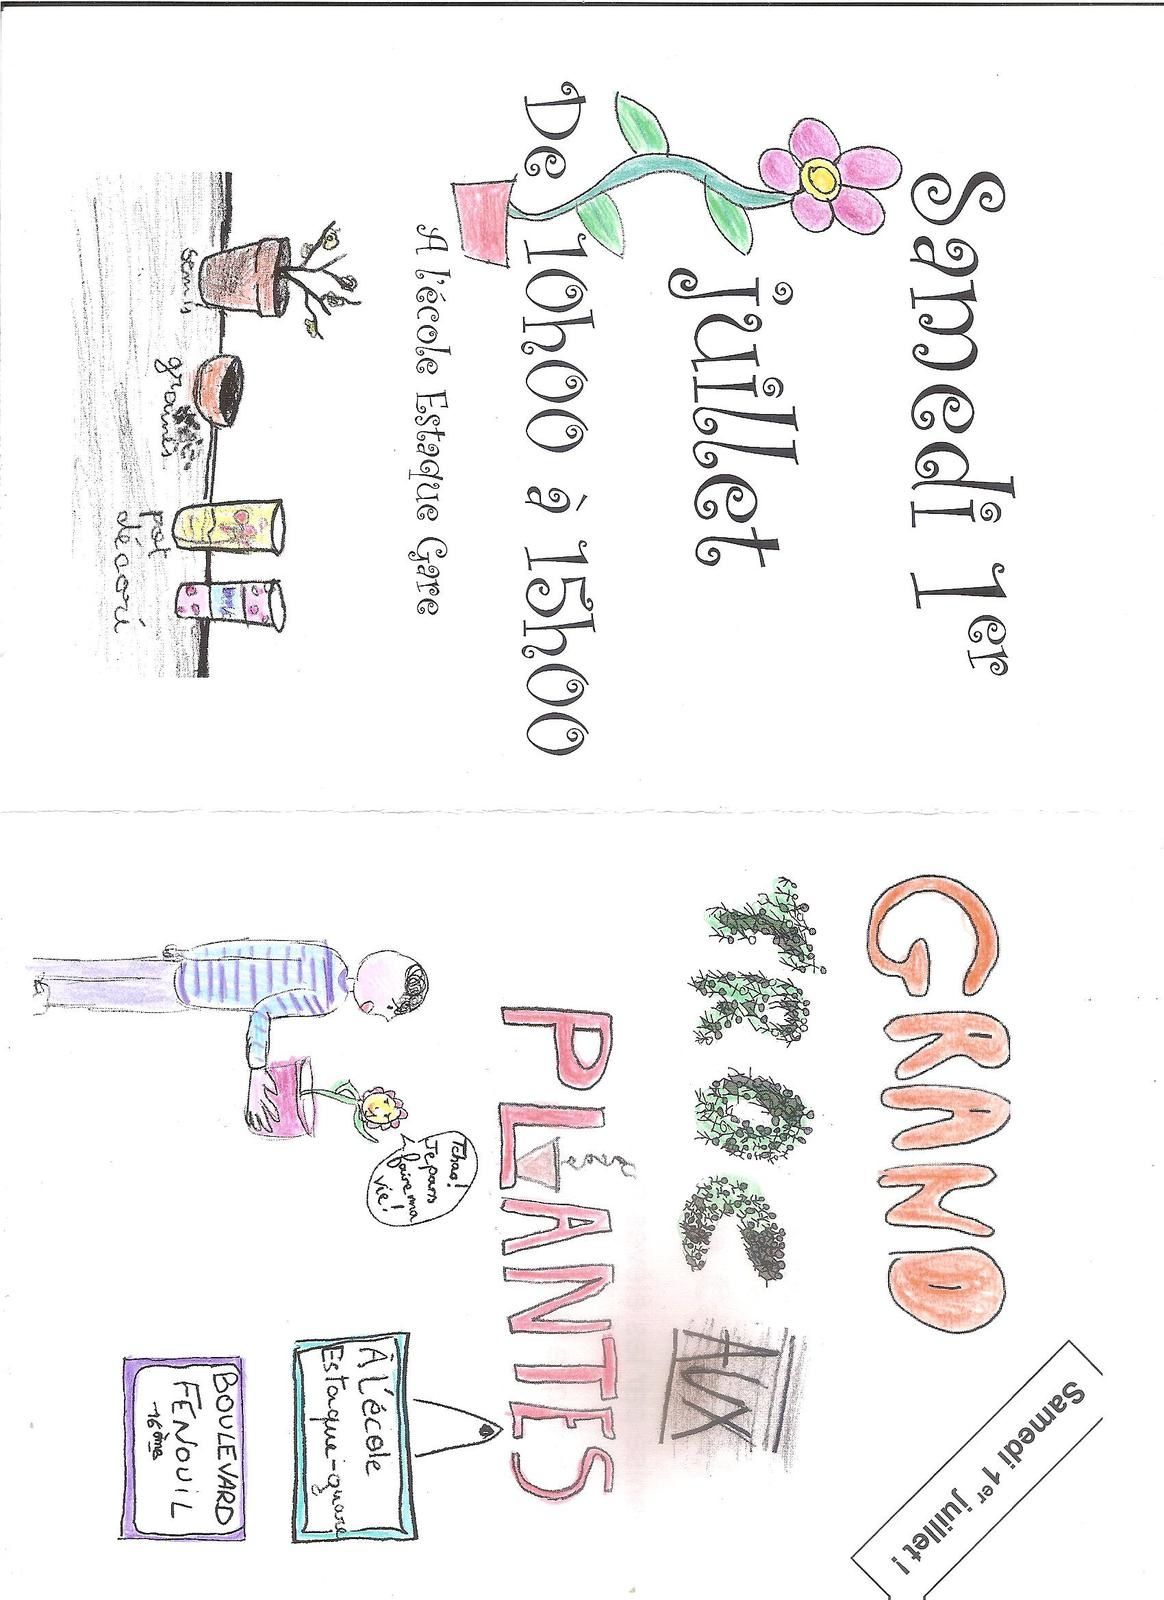 Samedi 1er
juillet
De 10h00 à 15h00
A l'école Estaque Gare
semis
graines
pot
décoré
Samedi 1er juillet !
GRAND
TROC AUX
PLANTES
Tchao!
Je pars
faire ma
vie!
À L'école
Estaque-gare
BOULEVARD
FÉNOUIL
-16ème